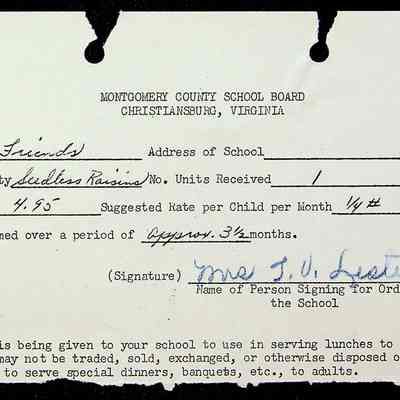 MONTGOMERY COUNTY SCHOOL BOARD
CHRISTIANSBURG, VIRGINIA
Friends Address of School
ty Seedless Raisins No. Units Received 1
4.95 Suggested Rate per Child per Month 1/4 #
med over a period of approx. 3½ months.
(Signature) Mrs T. V. Leste
Name of Person Signing for Ord
the School
is being given to your school to use in serving lunches to
may not be traded, sold, exchanged, or otherwise disposed o
to serve special dinners, banquets, etc., to adults.